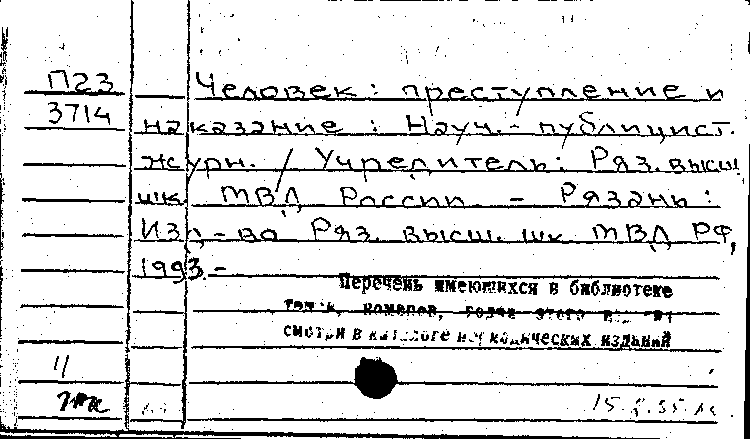 П23 Человек: преступление и
3714 наказание : Науч.- публицист.
журн. / Учредитель: Ряз. высш.
шк. МВД России. - Рязань :
Изд-во Ряз. высш. шк. МВД РФ,
1993.-
Перечень имеющихся в библиотеке
томов, номеров, годов этого
смотри в каталоге периодических изданий
11